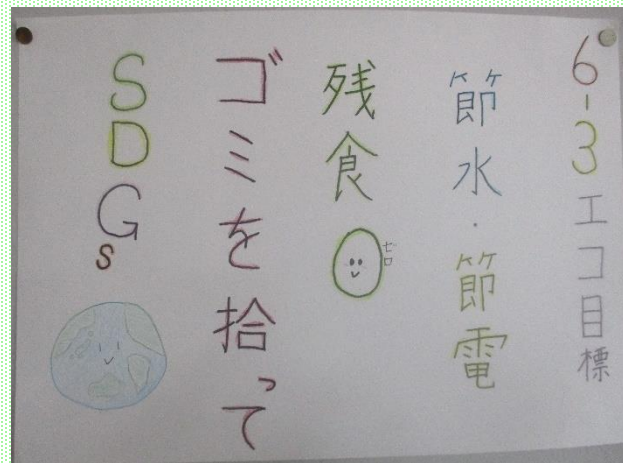 6-3エコ目標
節水・節電
残食0ゼロ
ゴミを拾って
SDGs